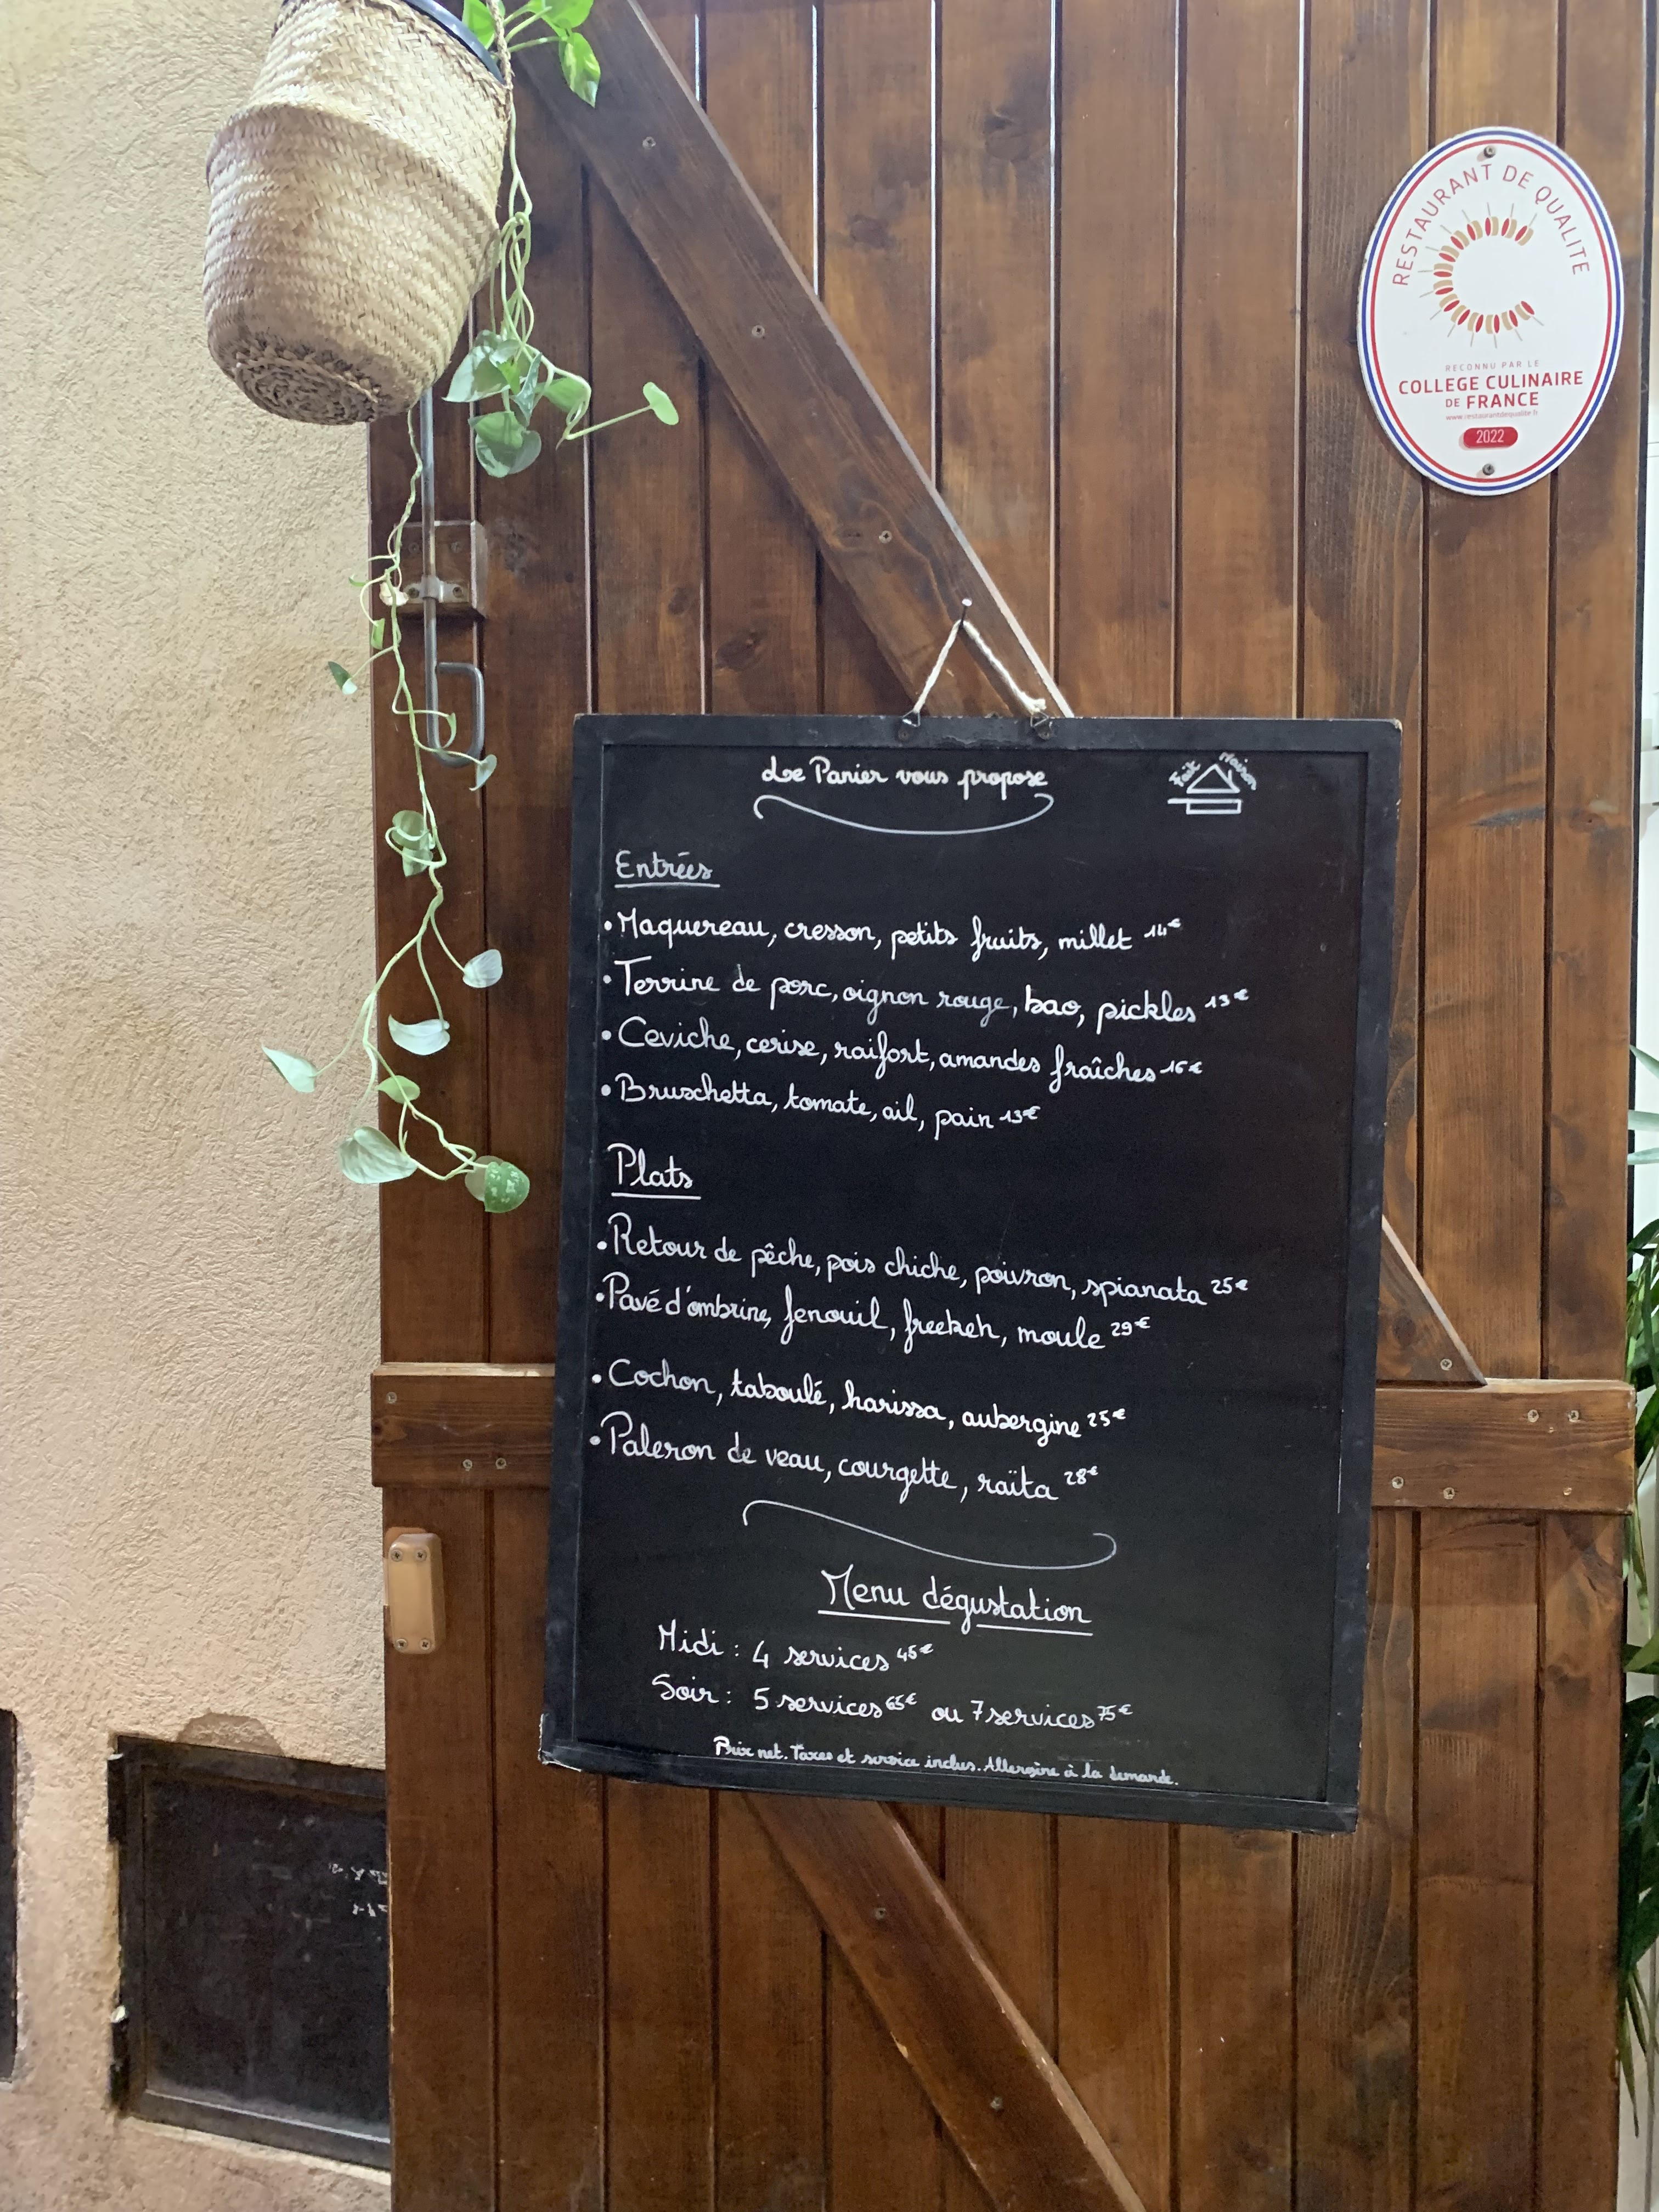 RESTAURANT DE QUALITE
RECONNU PAR LE
COLLEGE CULINAIRE
DE FRANCE
www.restaurantdequalite.fr
2022
Le Panier vous propose
Fait Maison
Entrées
• Maquereau, cresson, petits fruits, millet 14€
• Terrine de porc, oignon rouge, bao, pickles 13€
• Ceviche, cerise, raifort, amandes fraîches 16€
• Bruschetta, tomate, ail, pain 13€
Plats
• Retour de pêche, pois chiche, poivron, spianata 25€
• Pavé d'ombrine, fenouil, freekeh, moule 29€
• Cochon, taboulé, harissa, aubergine 25€
• Paleron de veau, courgette, raïta 28€
Menu dégustation
Midi : 4 services 45€
Soir : 5 services 65€ ou 7 services 75€
Prix net. Taxes et service inclus. Allergène à la demande.